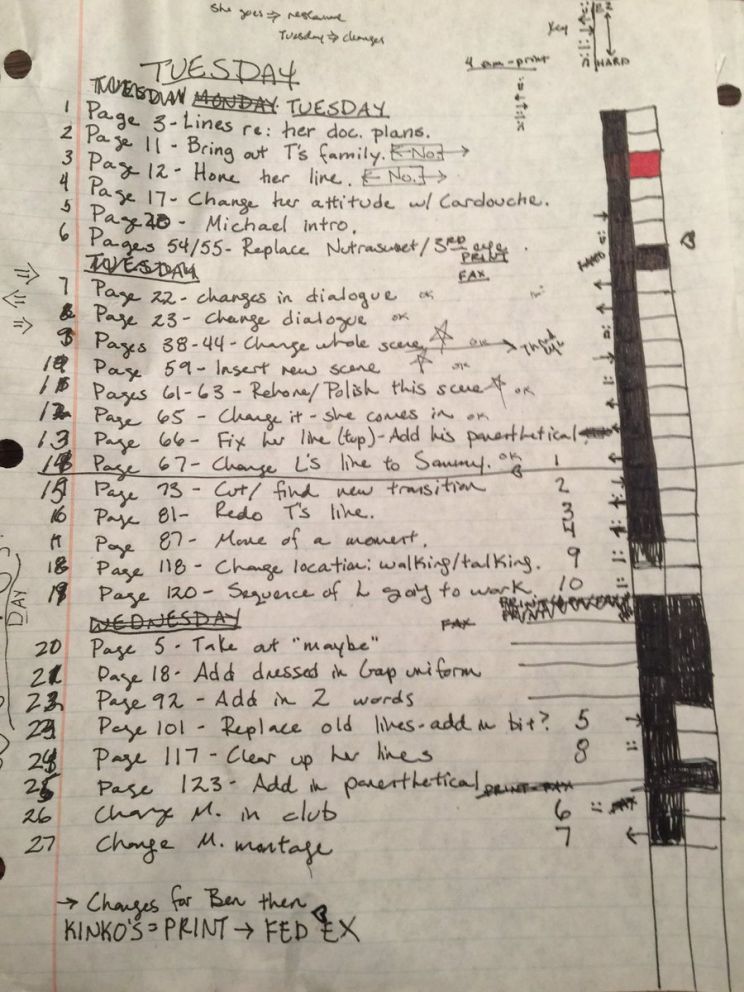 she goes ⇒
Tuesday ⇒ changes
Key
EZ
HARD
4 am - print
TUESDAY
TUESDAY MONDAY TUESDAY
1 Page 3 - Lines re: her doc. plans.
2 Page 11 - Bring out T's family. ← No. →
3 Page 12 - Hone her line. ← No. →
4 Page 17 - Change her attitude w/ Cardouche.
5 Page 20 - Michael intro.
6 Pages 54/55 - Replace Nutrasweet / 3RD eye.
PRINT
TUESDAY FAX
7 Page 22 - changes in dialogue OK
8 Page 23 - Change dialogue OK
9 Pages 38-44 - Change whole scene ☆ OK →
10 Page 59 - Insert new scene ☆ OK
11 Pages 61-63 - Rehone/Polish this scene ☆ OK
12 Page 65 - Change it - she comes in OK
13 Page 66 - Fix her line (top) - Add his parenthetical
14 Page 67 - Change L's line to Sammy. OK 1
15 Page 73 - Cut/find new transition 2
16 Page 81 - Redo T's line. 3
17 Page 87 - More of a moment. 4
18 Page 118 - Change location: walking/talking. 9
19 Page 120 - Sequence of L going to work 10
WEDNESDAY FAX
20 Page 5 - Take out "maybe"
21 Page 18 - Add dressed in Gap uniform
22 Page 92 - Add in 2 words
23 Page 101 - Replace old lines - add in bit? 5
24 Page 117 - Clear up her lines 8
25 Page 123 - Add in parenthetical PRINT - FAX
26 Change M. in club 6
27 Change M. montage 7
DAY
→ Changes for Ben then
KINKO'S = PRINT → FED EX